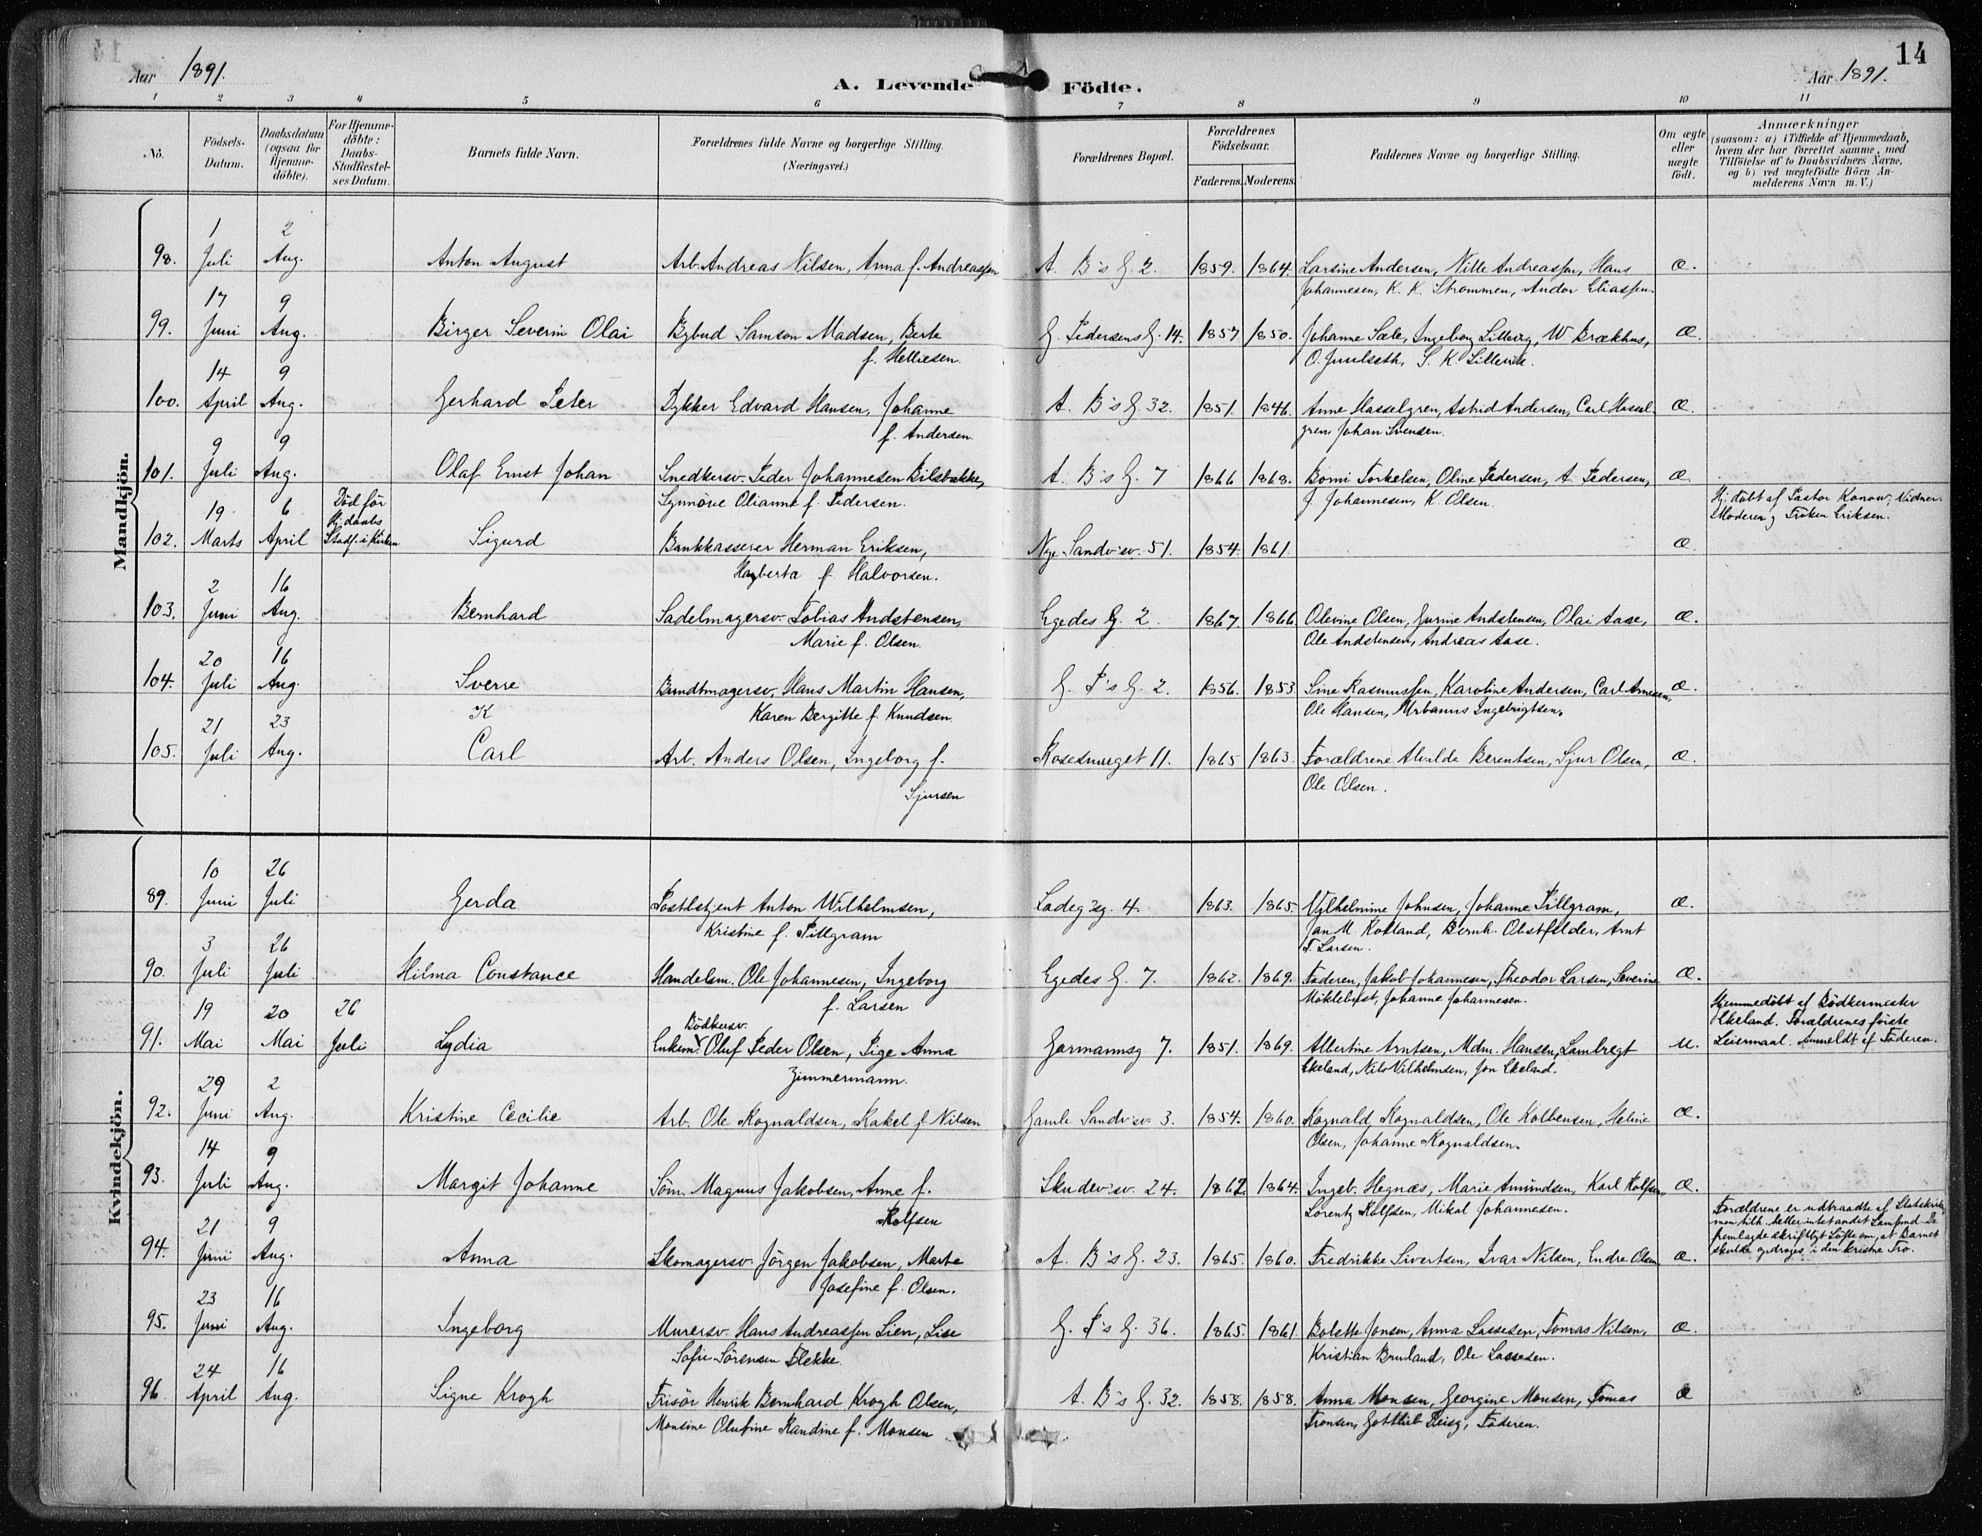 14
Aar 1891.
A. Levende Födte.
Aar 1891.
1 2 3 4 5 6 7 8 9 10 11
No.
Födsels-Datum.
Daabsdatum (ogsaa for Hjemme-döbte).
For Hjemme-döbte: Daabs-Stadfæstel-ses Datum.
Barnets fulde Navn.
Forældrenes fulde Navne og borgerlige Stilling. (Næringsvei.)
Forældrenes Bopæl.
Forældrenes Födselsaar.
Faderens. Moderens.
Faddernes Navne og borgerlige Stilling.
Om ægte eller uægte födt.
Anmærkninger
(saasom: a) i Tilfælde af Hjemmedaab,
hvem der har forrettet samme, med
Tilföielse af to Daabsvidners Navne,
og b) ved uægtefödte Börn An-
melderens Navn m. V.)
Mandkjön.
98. 1 Juli 2 Aug. Anton August Arb. Andreas Nilsen, Anna f. Andreassen A. B's G. 2. 1859. 1864. Larsine Andersen, Nille Andreassen, Hans Æ.
Johannesen, K. K. Strømmen, Andor Eliassen.
99. 17 Juni 9 Aug. Birger Severin Olai Bybud Samson Madsen, Berte G. Pedersens G. 14. 1857 1850. Johanne Sæle, Ingeborg Lillevig, W. Brækhus, Æ.
f. Helliesen. O. Juulseth, S. K. Lillevik.
100. 14 April 9 Aug. Gerhard Peter Dykker Edvard Hansen, Johanne A. B's G. 32. 1851. 1846. Anne Hasselgren, Astrid Andersen, Carl Hassel- Æ.
f. Andersen. gren, Johan Svensen.
101. 9 Juli 9 Aug. Olaf Ernst Johan Snedkersv. Peder Johannesen Bilstakke, A. B's G. 7 1866 1868. Bomi Torkelsen, Oline Pedersen, A. Pedersen, Æ.
Synnöve Olianne f. Pedersen. J. Johannesen, K. Olsen.
102. 19 Marts 6 April Död för Hj.daabs Stadf. i Kirken Sigurd Bankkasserer Herman Eriksen, Nye Sandv'sv. 51. 1854. 1861. Æ. Hj. döbt af Pastor Konow, Vidner: Moderen og Fröken Eriksen.
Hagberta f. Halvorsen.
103. 2 Juni 16 Aug. Bernhard Sadelmagersv. Tobias Andstensen, Egedes G. 2. 1867. 1866. Olevine Olsen, Gurine Andstensen, Olai Aase, Æ.
Marie f. Olsen. Ole Andstensen, Andreas Aase.
104. 20 Juli 16 Aug. Sverre Bundtmagersv. Hans Martin Hansen, G. P's G. 2. 1856. 1853. Sine Rasmussen, Karoline Andersen, Carl Arnesen, Æ.
Karen Bergitte f. Knudsen. Ole Hansen, Urbanus Ingebrigtsen.
105. 21 Juli 23 Aug. K Carl Arb. Anders Olsen, Ingeborg f. Rosesmuget 11. 1865 1863. Forældrene Alvilde Berentsen, Sjur Olsen, Æ.
Sjursen Ole Olsen.
Kvindekjön.
89. 10 Juni 26 Juli Gerda Postbetjent Anton Wilhelmsen, Ladeg'sg. 4. 1863. 1865. Vilhelmine Johnsen, Johanne Pillgram, Æ.
Kristine f. Pillgram Jan M. Rolland, Bernh. Obstfelder, Arnt
T. Larsen.
90. 3 Juli 26 Juli Hilma Constance Handelsm. Ole Johannesen, Ingeborg Egedes G. 7. 1862. 1869. Faderen, Jakob Johannesen, Theodor Larsen, Severine Æ.
f. Larsen Möklebust, Johanne Johannesen.
91. 19 Mai 20 Mai 26 Juli Lydia Bödkersv. Enkem. Oluf Peder Olsen, Pige Anna Garmannsg 7. 1851. 1869. Albertine Arntsen, Mdm. Hansen, Lambregt U. Hjemmedöbt af Bödkermester Ekeland. Forældrenes förste Leiermaal. Anmeldt af Faderen.
Zimmermann. Ekeland, Nils Vilhelmsen, Jon Ekeland.
92. 29 Juni 2 Aug. Kristine Cecilie Arb. Ole Rognaldsen, Rakel f. Nilsen Gamle Sandv'sv. 3. 1854. 1860. Rognald Rognaldsen, Ole Kolbensen, Heline Æ.
Olsen, Johanne Rognaldsen.
93. 14 Juli 9 Aug. Margit Johanne Söm. Magnus Jakobsen, Anne f. Skudev'sv. 24. 1862. 1864. Ingeb. Hegnæs, Marie Amundsen, Karl Rolfsen, Æ.
Rolfsen Lorentz Rolfsen, Mikal Johannesen.
94. 21 Juni 9 Aug. Anna Skomagersv. Jörgen Jakobsen, Marte A. B's G. 23. 1865. 1860. Fredrikke Sivertsen, Ivar Nilsen, Endre Olsen Æ. Forældrene er udtraadte af Statskirken, men tilh. heller intet andet Samfund. De fremlagde skriftligt Löfte om, at Barnet skulde opdrages i den kristne Tro.
Josefine f. Olsen.
95. 23 Juni 16 Aug. Ingeborg Murersv. Hans Andreassen Lien, Lise G. P's G. 36. 1865. 1861 Bolette Jonsen, Anna Lassesen, Tomas Nilsen, Æ.
Sofie Sörensen Flekke. Kristian Bruland, Ole Lassesen.
96. 24 April 16 Aug. Signe Krogh Frisör Henrik Bernhard Krogh Olsen, A. B's G. 32. 1858. 1858. Anna Monsen, Georgine Monsen, Tomas Æ
Monsine Olufine Randine f. Monsen Tronsen, Gottlieb Reisg, Faderen.